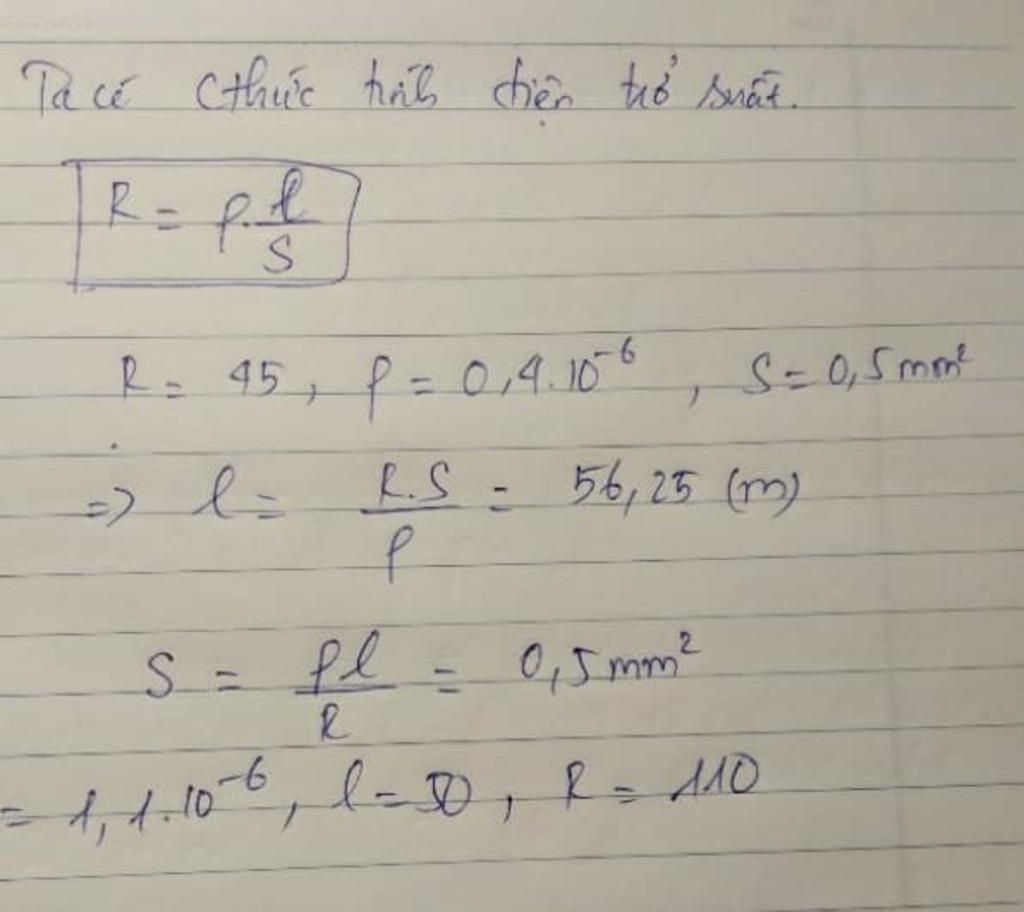 Ta có cthức tính điện trở suất.
R = ρ. l/S
R = 45, ρ = 0,4.10⁻⁶, S = 0,5 mm²
=> l = R.S/ρ = 56,25 (m)
S = ρl/R = 0,5 mm²
= 1,1.10⁻⁶, l = 50, R = 110